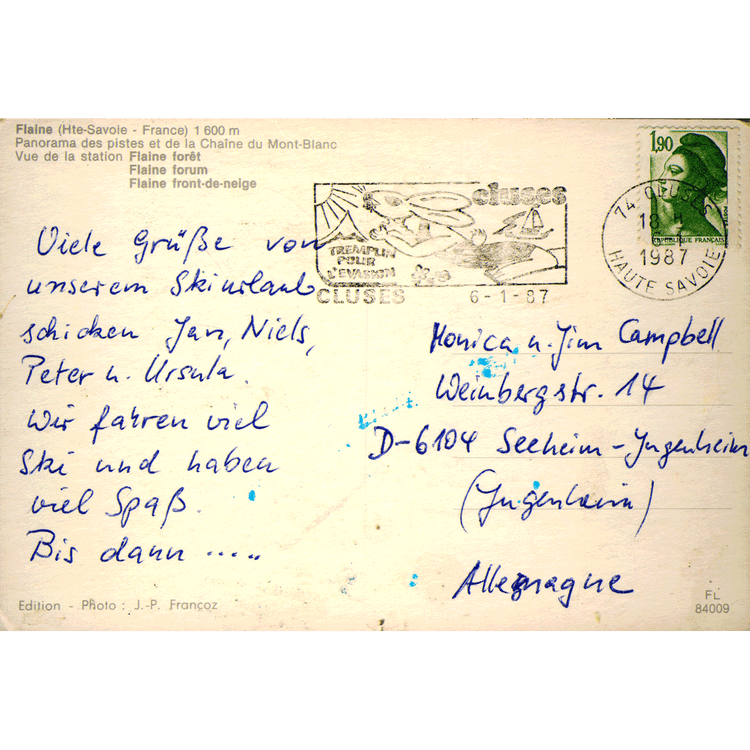 Flaine (Hte-Savoie - France) 1 600 m
Panorama des pistes et de la Chaîne du Mont-Blanc
Vue de la station Flaine forêt
Flaine forum
Flaine front-de-neige
1,90
REPUBLIQUE FRANÇAISE
cluses
TREMPLIN
POUR
L'EVASION
CLUSES 6-1-87
74 CLUSES
18 H
6-1
1987
HAUTE SAVOIE
Viele Grüße von
unserem Skiurlaub
schicken Jan, Niels,
Peter u. Ursula.
Wir fahren viel
Ski und haben
viel Spaß.
Bis dann .....
Monica u. Jim Campbell
Weinbergstr. 14
D-6104 Seeheim-Jugenheim
(Jugenheim)
Allemagne
Edition - Photo : J.-P. Francoz
FL
84009